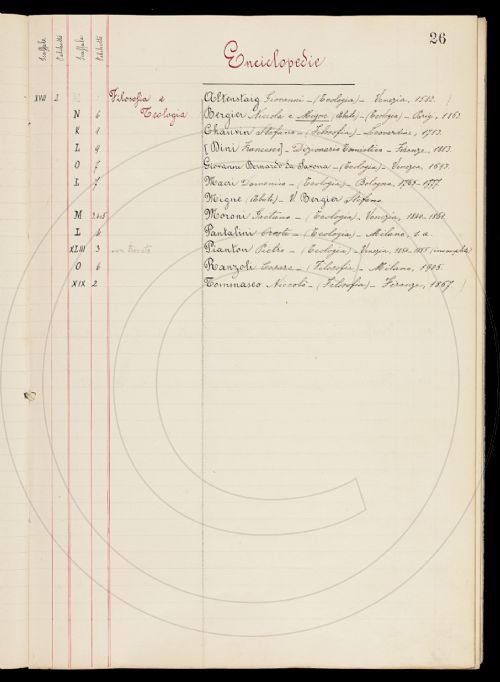 26
Scaffale Palchetto Scaffale Palchetto
Enciclopedie
XVII 2 Filosofia e Altenstaig Giovanni - (Teologia) - Venezia, 1582.
N 6 Teologia Bergier Nicola e Migne (Abate) - (Teologia) - Parigi, 1863.
K 1 Chauvin Stefano - (Filosofia) - Leovardiae, 1713.
L 9 [Dini Francesco] - Dizionario Tomistico - Firenze, 1883.
O 7 Giovanni Bernardo da Savona - (Teologia) - Venezia, 1693.
L 7 Macri Domenico - (Teologia) - Bologna, 1765-1777.
Migne (Abate) - V. Bergier Stefano
M 2 a 5 Moroni Gaetano - (Teologia) - Venezia, 1840-1861.
L 6 Pantalini Oreste - (Teologia) - Milano, s. a.
XLIII 3 Pianton Pietro - (Teologia) - Venezia, (incompleta)
O 6 Ranzoli Cesare - (Filosofia) - Milano, 1905.
XIX 2 Tommaseo Niccolò - (Filosofia) - Firenze, 1867.